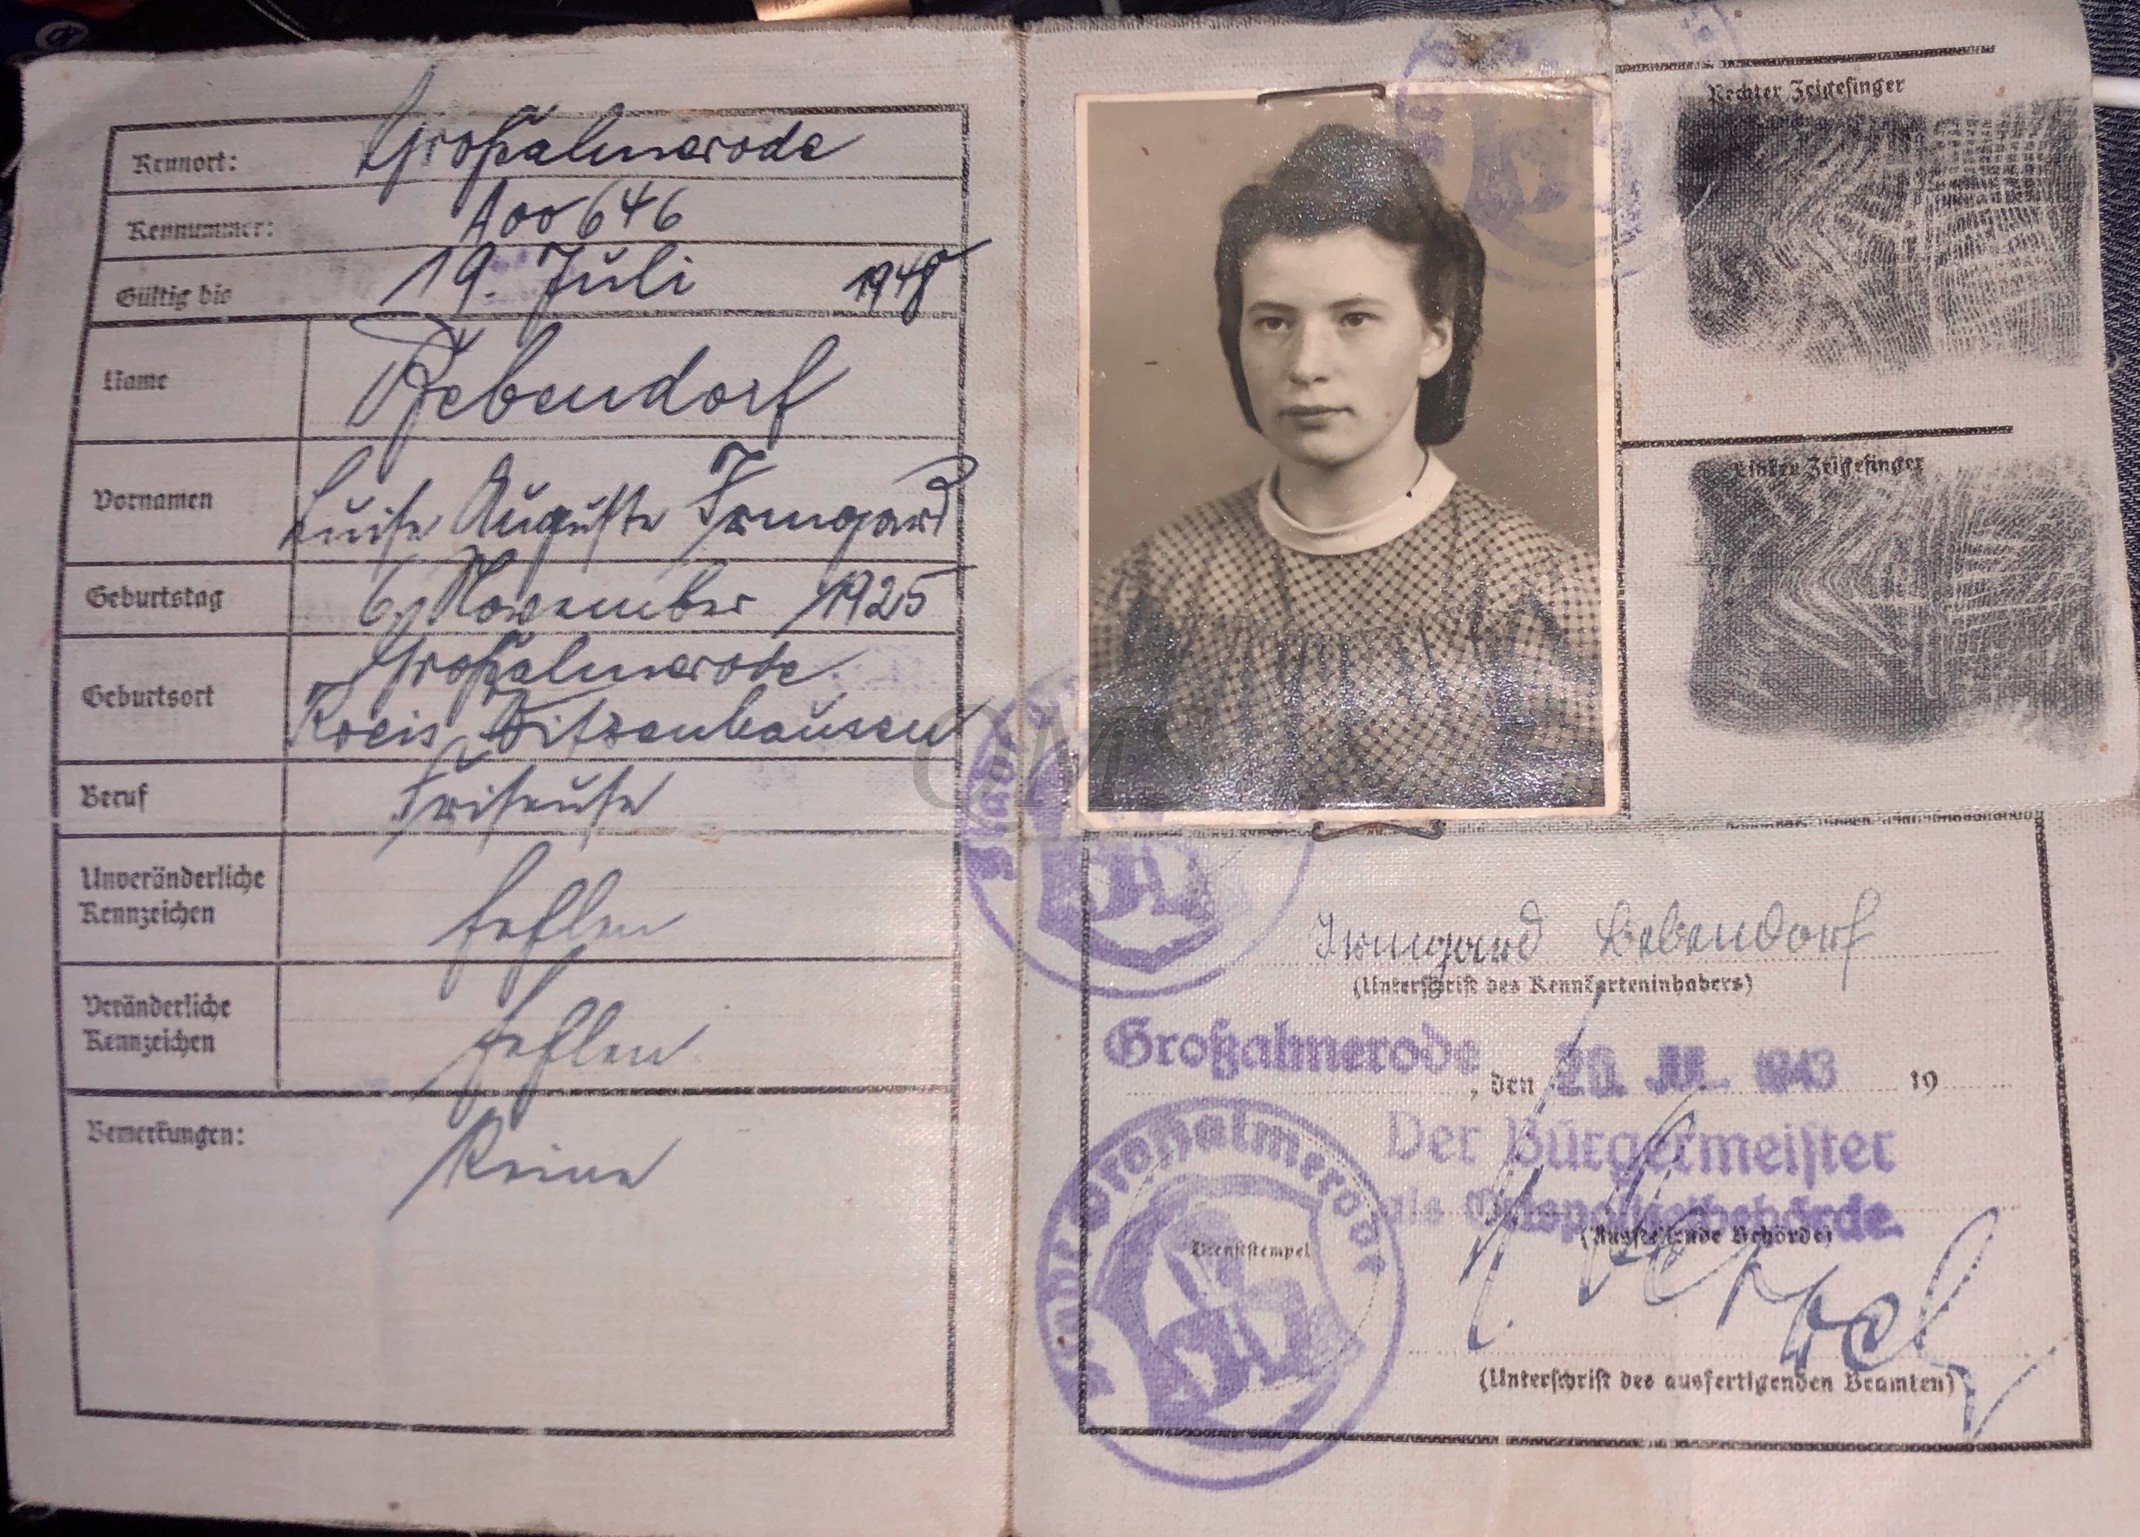 Kennort: Großalmerode
Kennummer: A00646
Gültig bis 19. Juli 1948
Name Bebendorf
Vornamen Luise Auguste Irmgard
Geburtstag 6. November 1925
Geburtsort Großalmerode
Kreis Witzenhausen
Beruf Friseuse
Unveränderliche
Kennzeichen fehlen
Veränderliche
Kennzeichen fehlen
Bemerkungen: Keine
Rechter Zeigefinger
Linker Zeigefinger
Stadt
Irmgard Bebendorf
(Unterschrift des Kennkarteninhabers)
Großalmerode, den 20. JUL. 1943 19
Der Bürgermeister
als Ortspolizeibehörde.
(Ausstellende Behörde)
Stadt Großalmerode
Dienststempel
(Unterschrift des ausfertigenden Beamten)